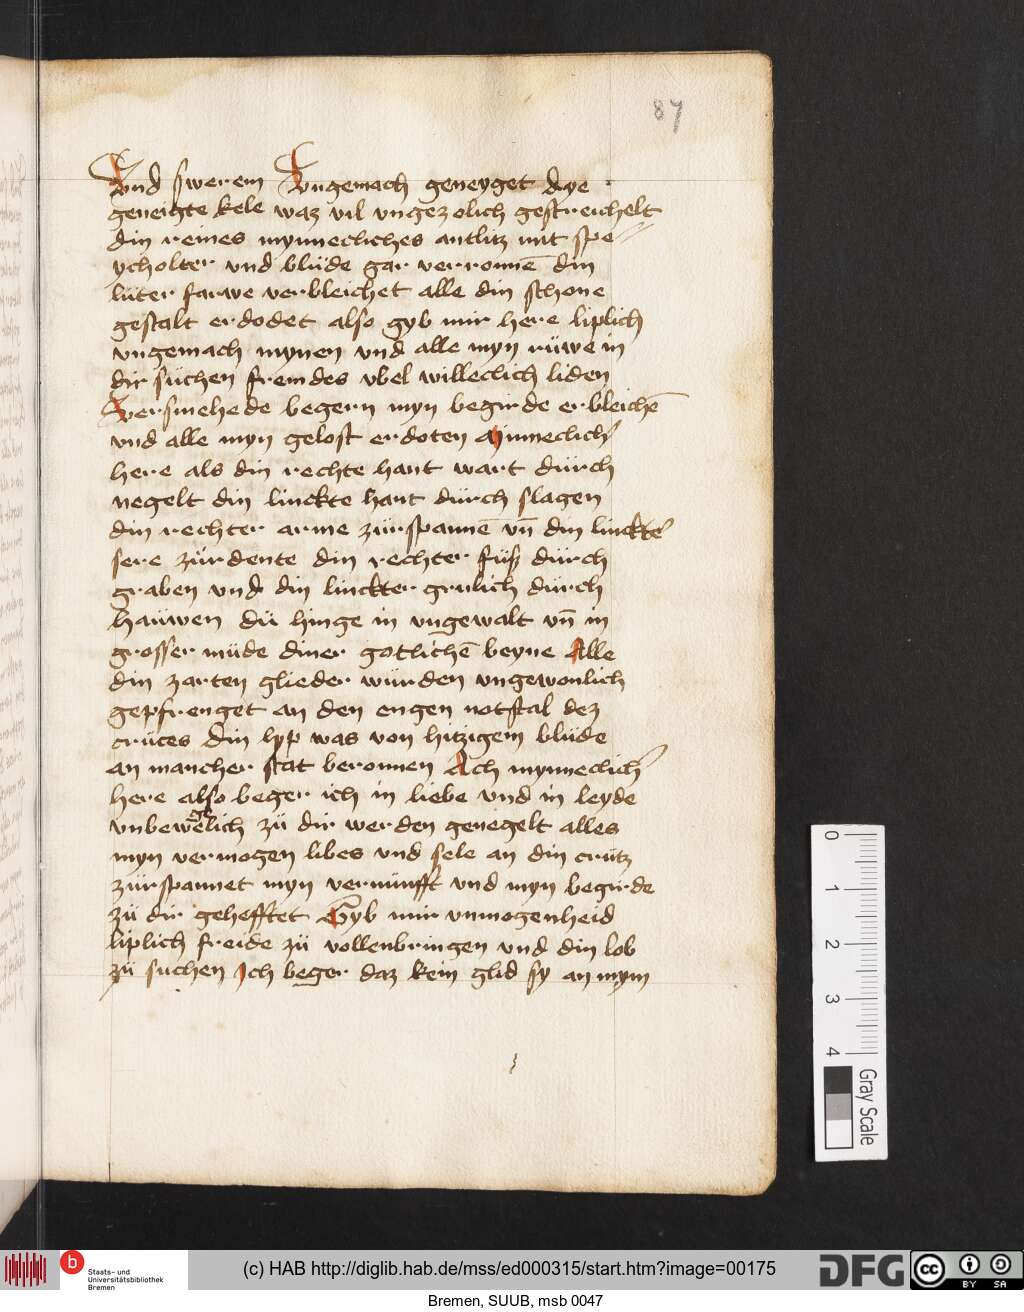 87
Vnd swerem Vngemach geneyget dye
geneigte kele waz vil vngezolich gestreichelt
din reines mynnecliches antlitz mit spe
ycholter vnd blüde gar verronnē din
lüter farwe verbleichet alle din schone
gestalt erdodet also gyb mir here liplich
vngemach mynen vnd alle myn rüwe in
dir süchen fremdes vbel willeclich liden
Versmehede begern myn begirde erbleichē
vnd alle myn gelost erdoten Mÿnneclich'
here als din rechte hant wart dürch
negelt din linckte hant dürch slagen
din rechter arme zürspannē vn̄ din linckte'
sere zürdente din rechter füsz dürch
graben vnd din linckter grulich dürch
haüwen dü hinge in vngewalt vn̄ in
grosser müde diner gotlichē beyne Alle
din zarten glieder würden vngewonlich
gepfrenget an den engen notstal dez
crüces din lyp was von hitzigem blüde
an mancher stat beronnen Ach mynneclich'
here also beger ich in liebe vnd in leyde
vnbewegelich zü dir werden genegelt alles
myn vermogen libes vnd sele an din crütz
zürspannet myn vernünfft vnd myn begirde
zü dir gehefftet Gyb mir vnmogenheid
liplich freide zü vollenbringen vnd din lob
zü suchen Ich beger daz kein glid sy an mym
0
1
2
3
4
Gray Scale
b
Staats- und
Universitätsbibliothek
Bremen
(c) HAB http://diglib.hab.de/mss/ed000315/start.htm?image=00175
DFG
cc
BY SA
Bremen, SUUB, msb 0047